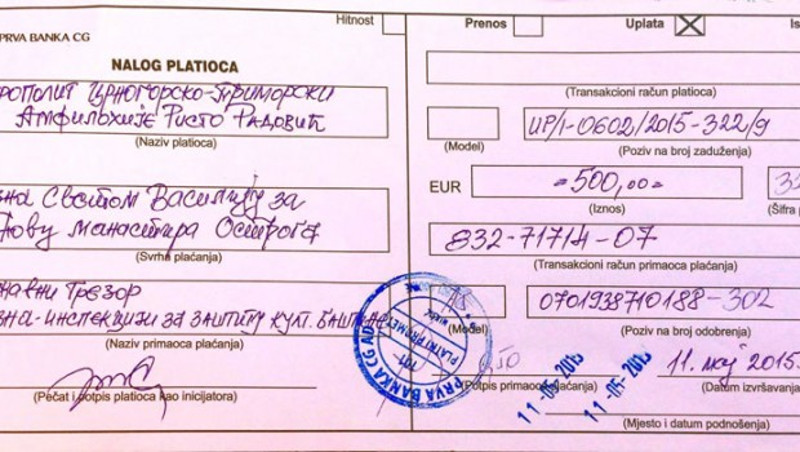 PRVA BANKA CG
Hitnost
NALOG PLATIOCA
рополит Црногорско-Приморски
Амфилохије Ристо Радовић
(Naziv platioca)
на Светом Василију за
нову манастира Острога
(Svrha plaćanja)
жавни трезор
зна-инспекцији за заштиту култ. баштине
(Naziv primaoca plaćanja)
(Pečat i potpis platioca kao inicijatora)
Prenos
Uplata
Is
(Transakcioni račun platioca)
UP/I-0602/2015-322/9
(Model)
(Poziv na broj zaduženja)
EUR
=500,00=
(Iznos)
(Šifra p
832-71714-07
(Transakcioni račun primaoca plaćanja)
18
0701938710188-302
(Model)
(Poziv na broj odobrenja)
PRVA BANKA CG AD
PLATNI PROMET
(Potpis primaoca plaćanja)
11. мај 2015.
(Datum izvršavanja
11-05-2015
11-05-2015
(Mjesto i datum podnošenja)